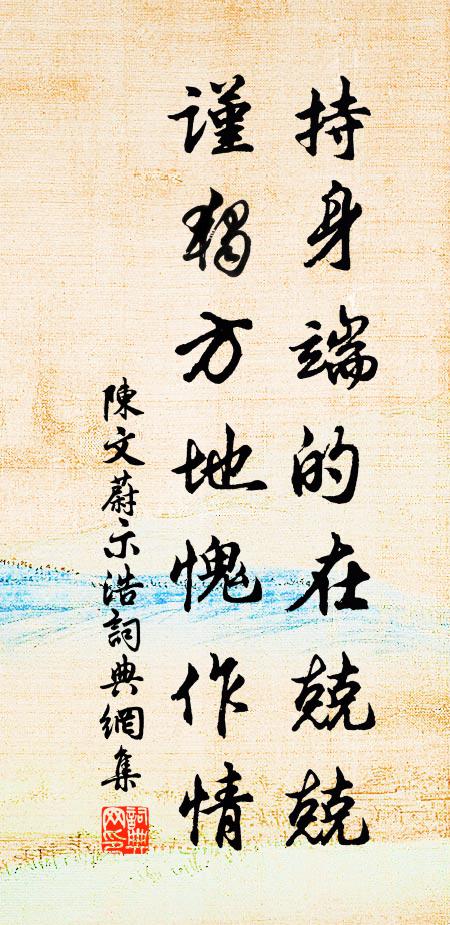 持身端的在兢兢
謹獨方地愧作情
陳文蔚示浩詞典網集
詞典
网印